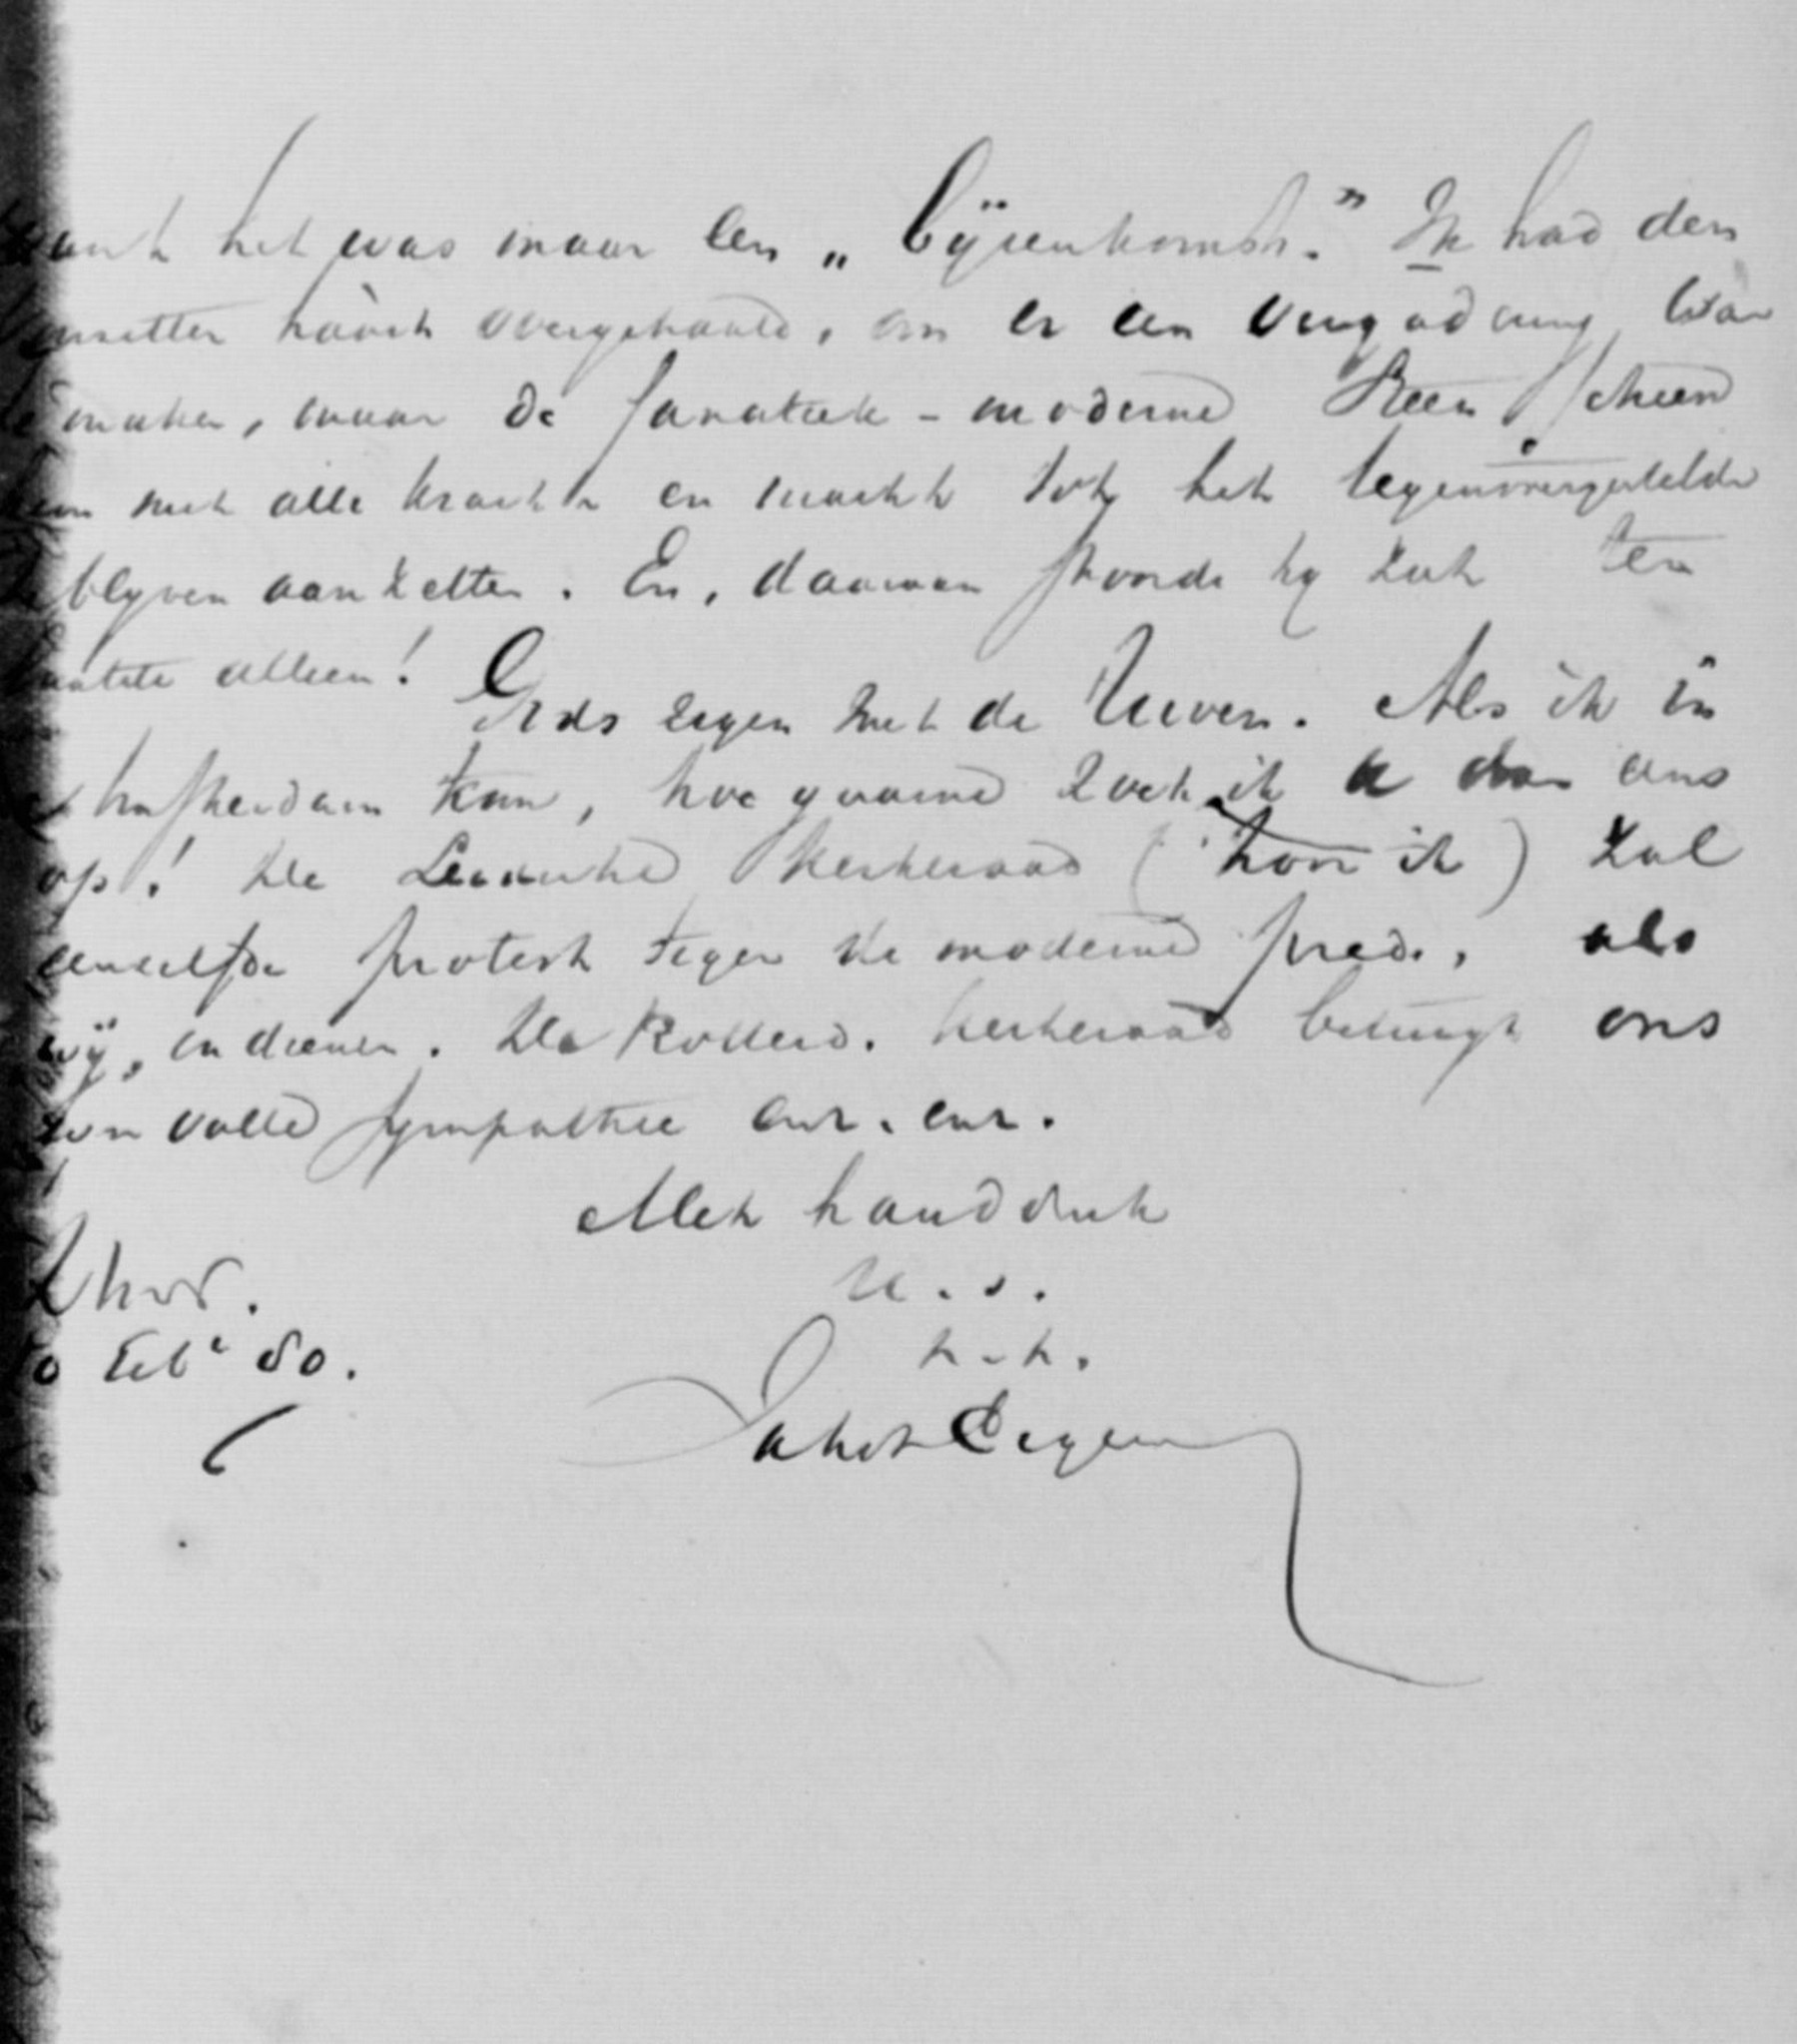 want het was maar een „bijeenkomst." Ik had den
haast overgehaald, om er een vergadering van
te maken, maar de fanatiek-moderne Heer scheen
hem met alle kracht en macht tot het tegenovergestelde
te blijven aanzetten. En, daaraan stoorde hy zich ten
laatste alleen!
Gods zegen met de Uwen. Als ik in
Amsterdam kom, hoe gaarne zoek ik u dan eens
op! De Leidsche Kerkeraad (hoor ik) zal
eenzelfde protest tegen de moderne pred., als
wij, indienen. De Rotterd. Kerkeraad betuigt ons
zijn volle sympathie enz. enz.
Met handdruk
U. v.
Febr 80.